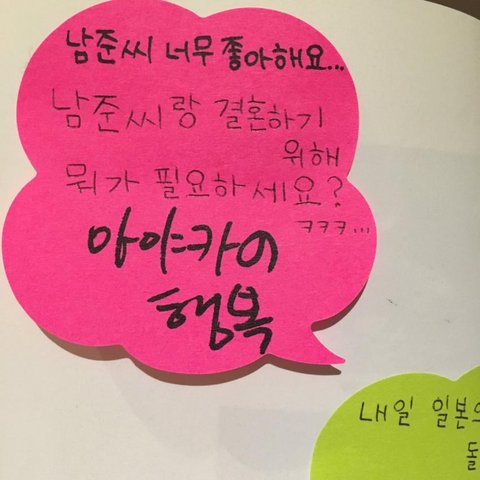 남준씨 너무 좋아해요...
남준씨랑 결혼하기
위해
뭐가 필요하세요?
ㅋㅋㅋ...
아야카의
행복
내일 일본으
돌